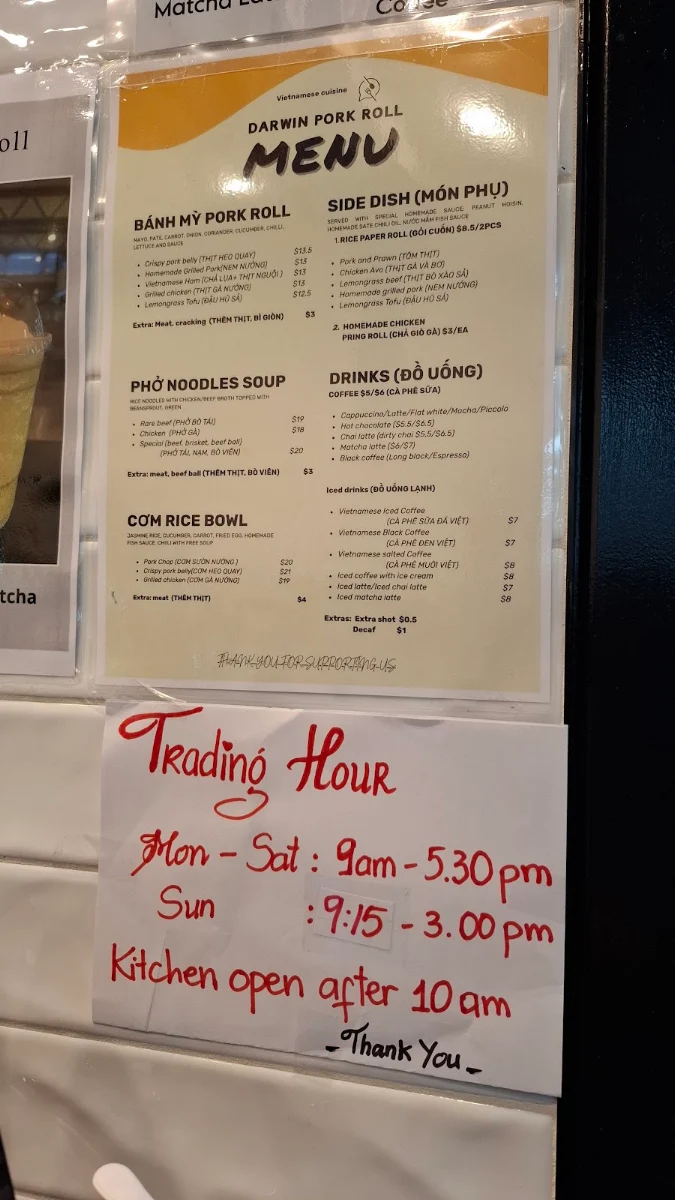 Matcha Lat
Coffee
oll
tcha
Vietnamese cuisine
DARWIN PORK ROLL
MENU
BÁNH MỲ PORK ROLL
MAYO, PATE, CARROT, ONION, CORIANDER, CUCUMBER, CHILLI,
LETTUCE AND SAUCE
• Crispy pork belly (THỊT HEO QUAY) $13.5
• Homemade Grilled Pork(NEM NƯỚNG) $13
• Vietnamese Ham (CHẢ LỤA+ THỊT NGUỘI ) $13
• Grilled chicken (THỊT GÀ NƯỚNG) $13
• Lemongrass Tofu (ĐẬU HŨ SẢ) $12.5
Extra: Meat, cracking (THÊM THỊT, BÌ GIÒN) $3
PHỞ NOODLES SOUP
RICE NOODLED WITH CHICKEN/BEEF BROTH TOPPED WITH
BEANSPROUT, GREEN
• Rare beef (PHỞ BÒ TÁI) $19
• Chicken (PHỞ GÀ) $18
• Special (beef, brisket, beef ball)
(PHỞ TÁI, NẠM, BÒ VIÊN) $20
Extra: meat, beef ball (THÊM THỊT, BÒ VIÊN) $3
CƠM RICE BOWL
JASMINE RICE, CUCUMBER, CARROT, FRIED EGG, HOMEMADE
FISH SAUCE, CHILI WITH FREE SOUP
• Pork Chop (CƠM SƯỜN NƯỚNG ) $20
• Crispy pork belly(CƠM HEO QUAY) $21
• Grilled chicken (CƠM GÀ NƯỚNG) $19
Extra: meat (THÊM THỊT) $4
SIDE DISH (MÓN PHỤ)
SERVED WITH SPECIAL HOMEMADE SAUCE PEANUT HOISIN,
HOMEMADE SATE CHILI OIL, NƯỚC MẮM FISH SAUCE
1.RICE PAPER ROLL (GỎI CUỐN) $8.5/2PCS
• Pork and Prawn (TÔM THỊT)
• Chicken Avo (THỊT GÀ VÀ BƠ)
• Lemongrass beef (THỊT BÒ XÀO SẢ)
• Homemade grilled pork (NEM NƯỚNG)
• Lemongrass Tofu (ĐẬU HŨ SẢ)
2. HOMEMADE CHICKEN
PRING ROLL (CHẢ GIÒ GÀ) $3/EA
DRINKS (ĐỒ UỐNG)
COFFEE $5/$6 (CÀ PHÊ SỮA)
• Cappuccino/Latte/Flat white/Mocha/Piccolo
• Hot chocolate ($5.5/$6.5)
• Chai latte (dirty chai $5.5/$6.5)
• Matcha latte ($6/$7)
• Black coffee (Long black/Espresso)
Iced drinks (ĐỒ UỐNG LẠNH)
• Vietnamese Iced Coffee
(CÀ PHÊ SỮA ĐÁ VIỆT) $7
• Vietnamese Black Coffee
(CÀ PHÊ ĐEN VIỆT) $7
• Vietnamese salted Coffee
(CÀ PHÊ MUỐI VIỆT) $8
• Iced coffee with ice cream $8
• Iced latte/Iced chai latte $7
• Iced matcha latte $8
Extras: Extra shot $0.5
Decaf $1
THANK YOU FOR SURRORTING US
Trading Hour
Mon - Sat : 9am - 5.30 pm
Sun : 9:15 - 3.00 pm
Kitchen open after 10 am
- Thank You -